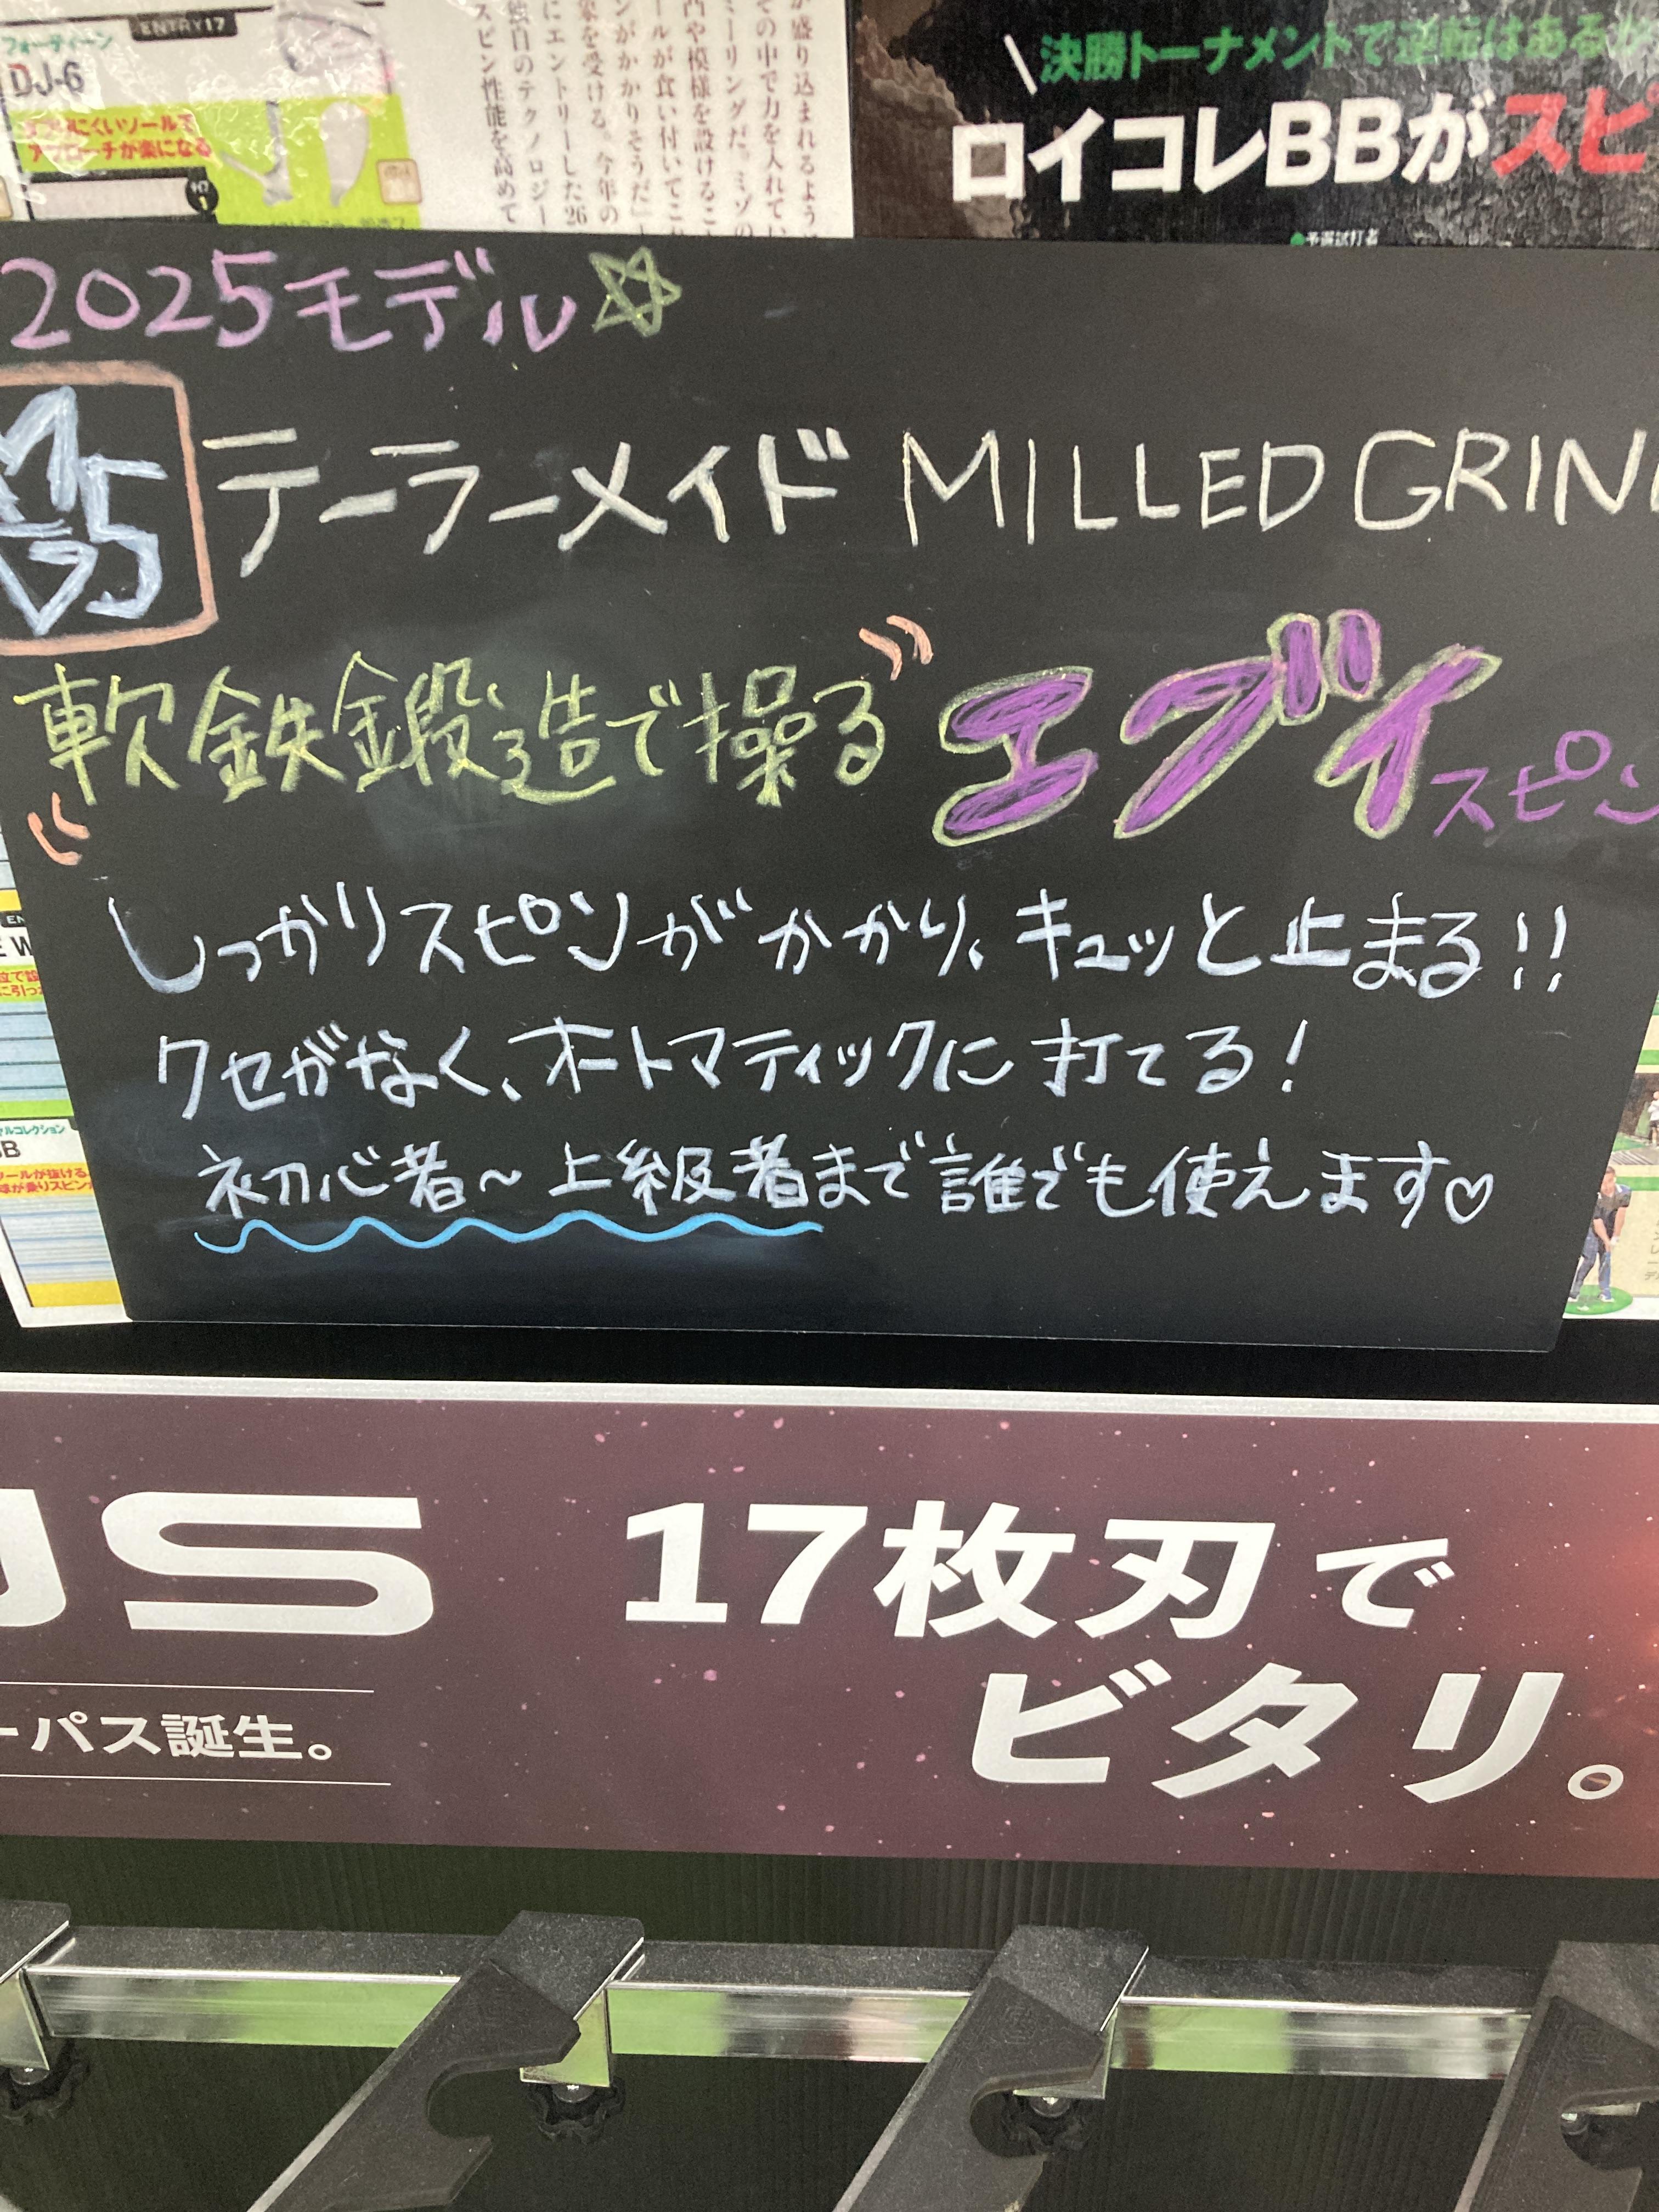 フォーティーン
ENTRY17
DJ-6
アプローチが楽になる
が盛り込まれるよう
その中で力を入れてい
ミーリングだ。ミゾの
凸や模様を設けるこ
ールが食い付いてこ
ンがかかりそうだ」
象を受ける。今年の
にエントリーした26
独自のテクノロジー
スピン性能を高めて
決勝トーナメントで逆転はある
ロイコレBBがスピ
●予選試打者
2025モデル☆
テーラーメイド MILLED GRIN
軟鉄鍛造で操る エグイスピン
しっかりスピンがかかり、キュッと止まる!!
クセがなく、オートマティックに打てる!
初心者~上級者まで誰でも使えます♡
US
17枚刃で
ビタリ。
ーパス誕生。